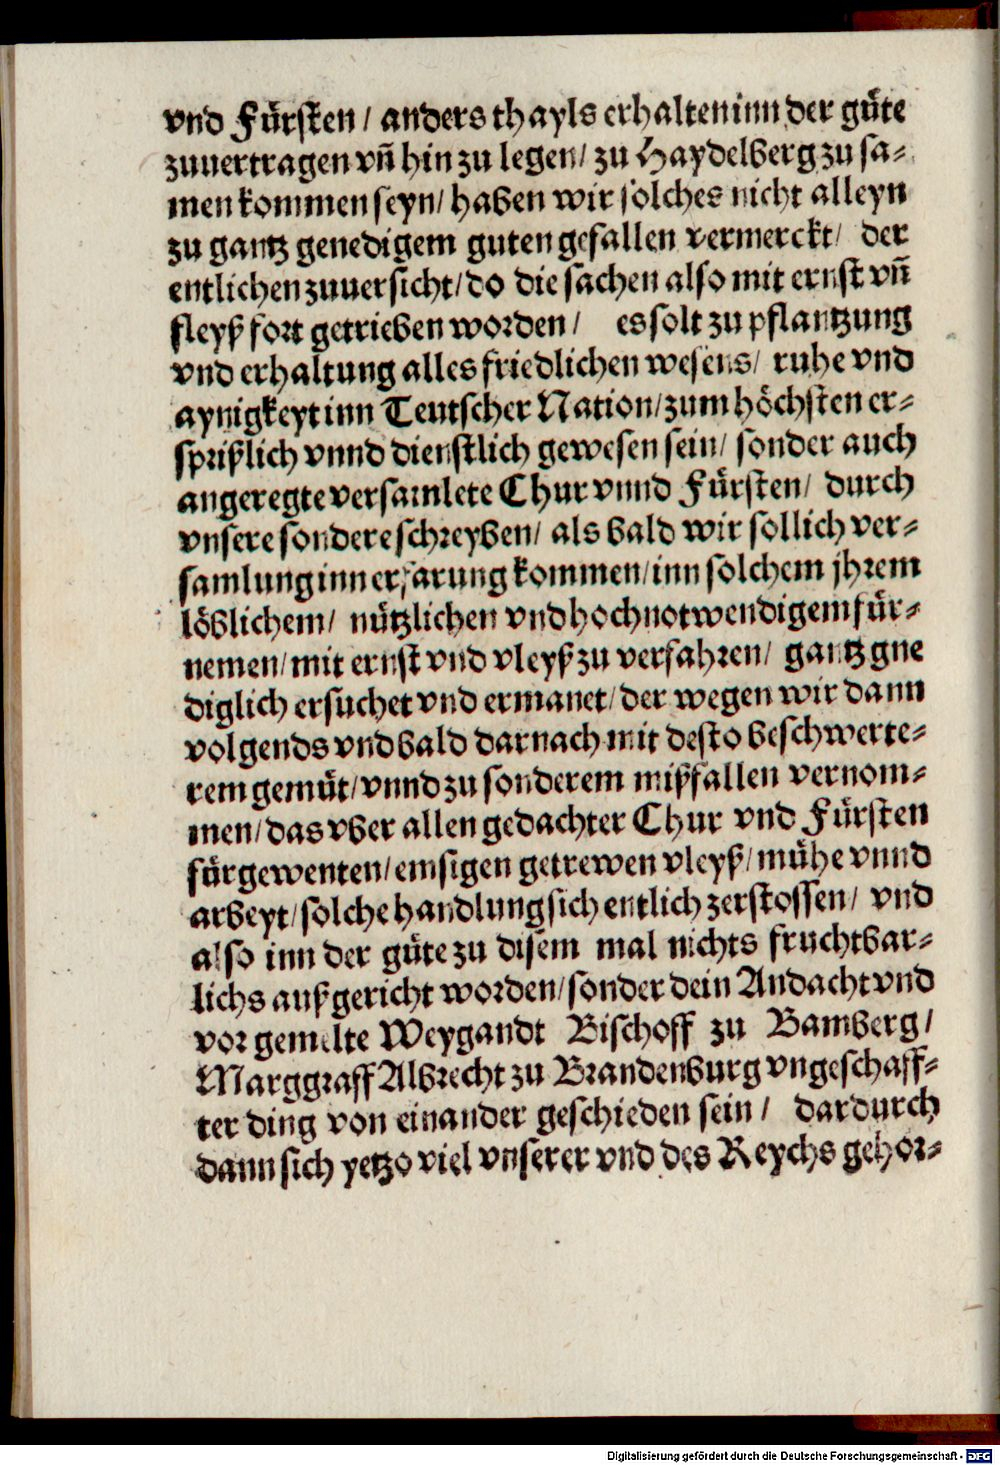 vnd Fürsten / anders thayls erhalten inn der güte
zuuertragen vñ hin zu legen / zu Haydelberg zu sa-
men kommen seyn / haben wir solches nicht alleyn
zu gantz genedigem guten gefallen vermerckt / der
entlichen zuuersicht / do die sachen also mit ernst vñ
fleyß fort getrieben worden / es solt zu pflantzung
vnd erhaltung alles friedlichen wesens / ruhe vnd
aynigkeyt inn Teutscher Nation / zum höchsten er-
sprißlich vnnd dienstlich gewesen sein / sonder auch
angeregte versamlete Chur vnnd Fürsten / durch
vnsere sondere schreyben / als bald wir sollich ver-
samlung inn erfarung kommen / inn solchem jhrem
löblichem / nützlichen vnd hochnotwendigem für-
nemen / mit ernst vnd vleyß zu verfahren / gantz gne
diglich ersuchet vnd ermanet / der wegen wir dann
volgends vnd bald darnach mit desto beschwerte-
rem gemüt / vnnd zu sonderem mißfallen vernom-
men / das vber allen gedachter Chur vnd Fürsten
fürgewenten / emsigen getrewen vleyß / mühe vnnd
arbeyt / solche handlung sich entlich zerstossen / vnd
also inn der güte zu disem mal nichts fruchtbar-
lichs außgericht worden / sonder dein Andacht vnd
vor gemelte Weygandt Bischoff zu Bamberg /
Marggraff Albrecht zu Brandenburg vngeschaff-
ter ding von einander geschieden sein / dardurch
dann sich yetzo viel vnserer vnd des Reychs gehor-
Digitalisierung gefördert durch die Deutsche Forschungsgemeinschaft - DFG